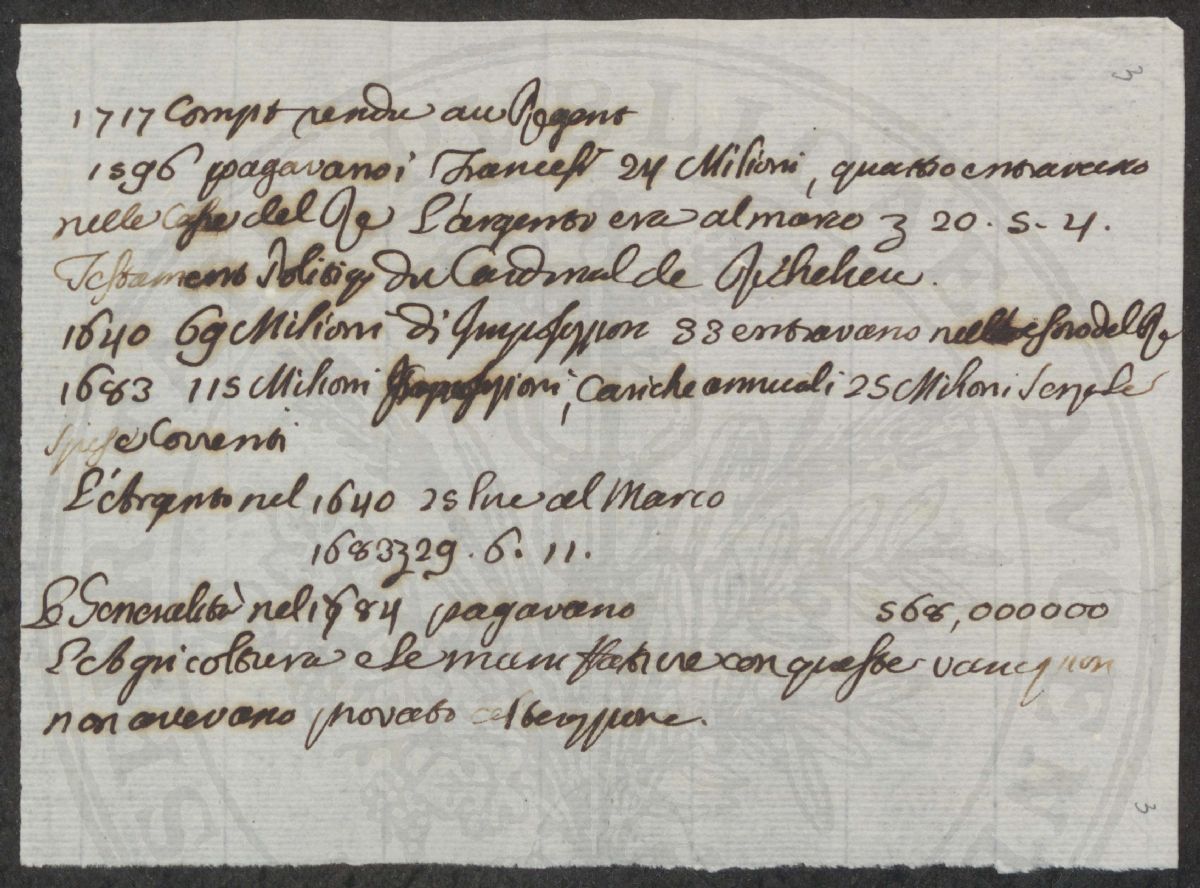 3
1717 Compt rendu au Regent
1596 pagavano i Francesi 24 Milioni, quattro entravano
nelle Casse del Re L'argento era al marco 20. 5. 4.
Testament Politiq du Cardinal de Richelieu.
1640 69 Milioni di Imposizion 33 entravano nel tesoro del Re
1683 115 Milioni Imposizioni, Cariche annuali 25 Milioni senza le
spese Correnti
L'Argento nel 1640 25 lire al Marco
1683 29. 6. 11.
Le Generalità nel 1684 pagavano 568,000000
L'Agricoltura e le manifatture con queste
non avevano provato alterazione.
3